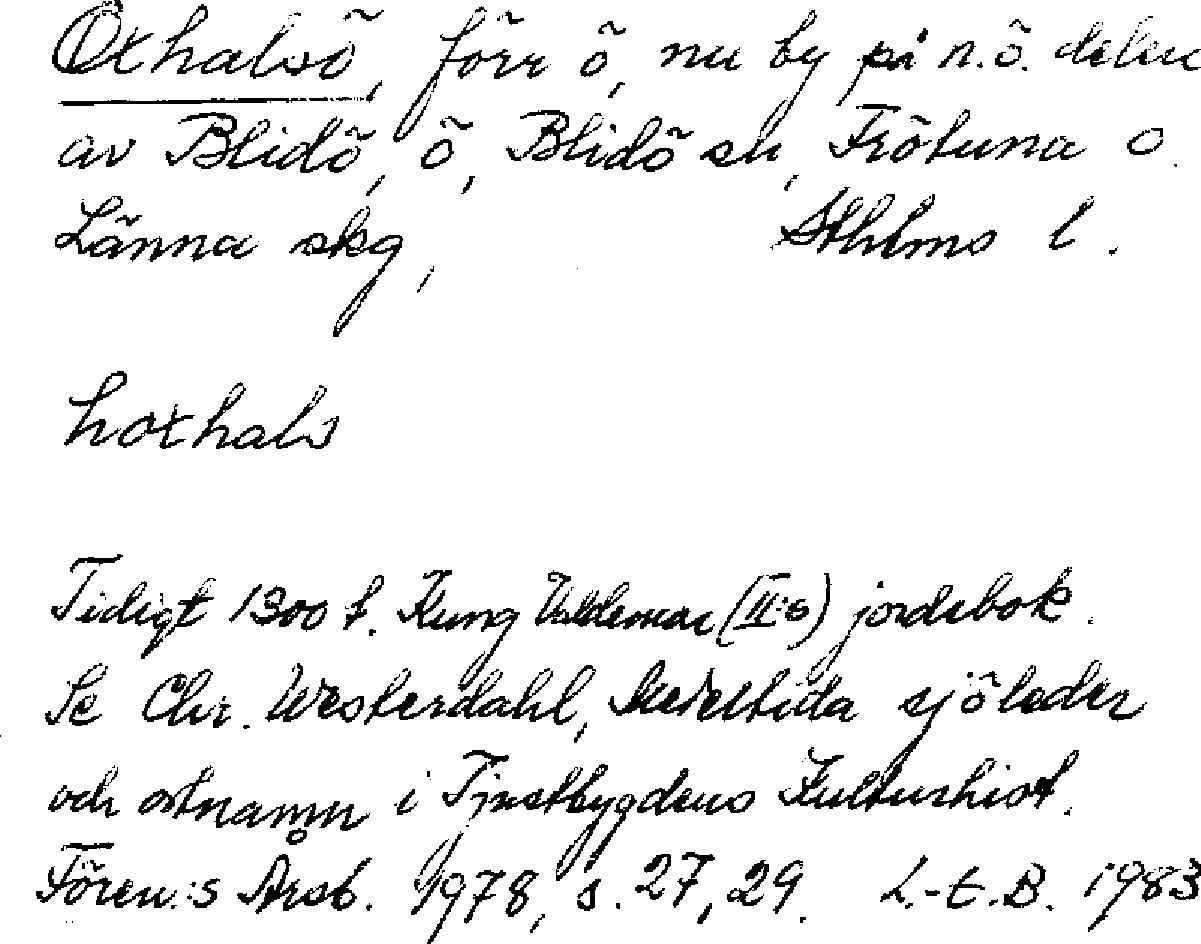 Oxhalsö, förr ö, nu by på n.ö. delen
av Blidö, ö, Blidö sn, Frötuna o.
Länna skg, Sthlms l.
hoxhals
Tidigt 1300 t. Kung Valdemar (II:s) jordebok.
Se Chr. Westerdahl, Medeltida sjöleder
och ortnamn i Tjustbygdens Kulturhist.
Fören:s Årsb. 1978, s. 27, 29. L.-E.B. 1983